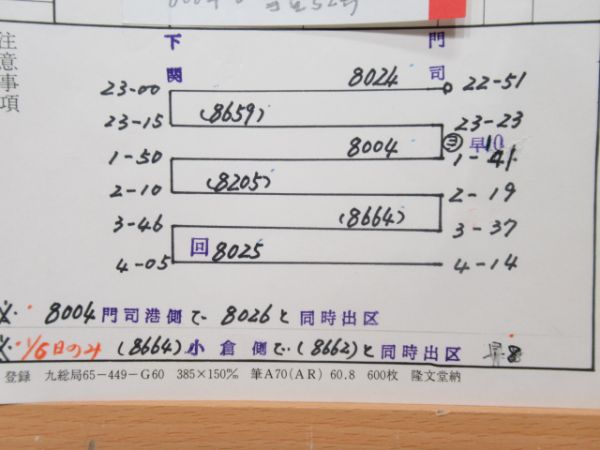 注意事項
下関 門司
23-00 8024 22-51
23-15 (8659) 23-23
㋵ 早10
1-50 8004 1-41
2-10 (8205) 2-19
3-46 (8664) 3-37
4-05 回8025 4-14
※・8004門司港側で8026と同時出区
※・1/6日のみ(8664)小倉側で(8662)と同時出区
登録 九総局65-449-G60 385×150‰ 筆A70(AR) 60.8 600枚 隆文堂納